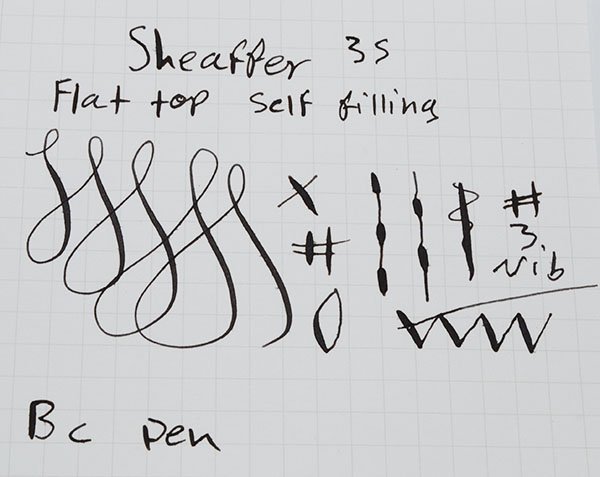 Sheaffer 3S
Flat top self filling
#
3.
Nib
#
Bc pen